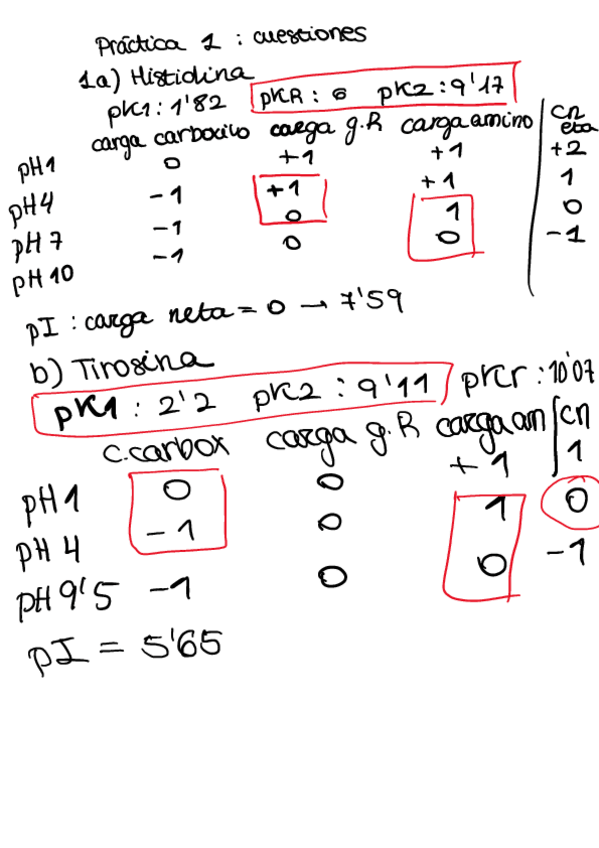 Práctica 1 : cuestiones
1a) Histidina
pK1: 1'82 pKR: 6 pK2: 9'17
carga carboxilo carga g.R carga amino cn eta
pH1 0 +1 +1 +2
pH4 -1 +1 +1 1
pH7 -1 0 1 0
pH10 -1 0 0 -1
pI : carga neta = 0 → 7'59
b) Tirosina
pK1 : 2'2 pK2 : 9'11 pKr : 10'07
c.carbox carga g.R carga am cn
pH1 0 0 +1 1
pH4 -1 0 1 0
pH9'5 -1 0 0 -1
pI = 5'65